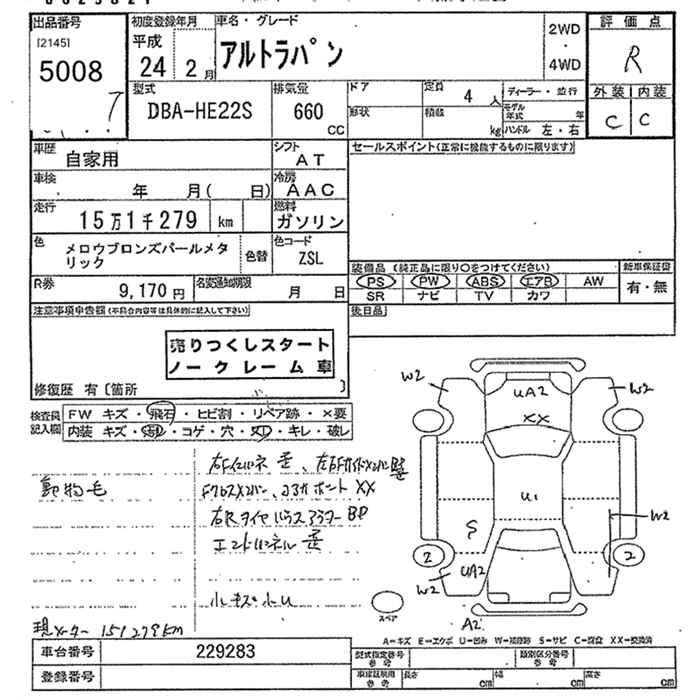 出品番号
[2145]
5008
7
初度登録年月
平成
24 2月
車名・グレード
アルトラパン
2WD
・
4WD
評価点
R
外装 内装
C C
型式
DBA-HE22S
排気量
660
CC
ドア
形状
定員
4 人
積載
kg
ディーラー・並行
モデル年式 年
ハンドル 左・右
車歴
自家用
シフト
AT
セールスポイント(正常に機能するものに限ります)
車検
年 月( 日)
冷房
AAC
走行
15万1千279 km
燃料
ガソリン
色
メロウブロンズパールメタリック
色替
色コード
ZSL
装備品 (純正品に限り○をつけてください)
PS PW ABS エアB AW
SR ナビ TV カワ
新車保証書
有・無
R券
9,170円
名変通知期限
月 日
後日品
注意事項申告欄(不具合内容等は具体的に記入して下さい)
売りつくしスタート
ノークレーム車
修復歴 有〔箇所 〕
検査員記入欄
FW キズ・飛石・ヒビ割・リペア跡・×要
内装 キズ・・コゲ・穴・・キレ・破レ
動物毛
右Fインパネ 歪、左右F
Fクロスメンバー、コアサポート XX
右Rタイヤハウス
エンドパネル 歪
小キズ小U
現メーター 151279KM
W2
W2
UA2
XX
U1
S
W2
2
2
UA2
W2
A2
スペア
A=キズ E=エクボ U=凹み W=補修跡 S=サビ C=腐食 XX=交換済
車台番号
229283
登録番号
型式指定番号
参考
類別区分番号
参考
車庫証明用
参考
長さ cm
幅 cm
高さ cm